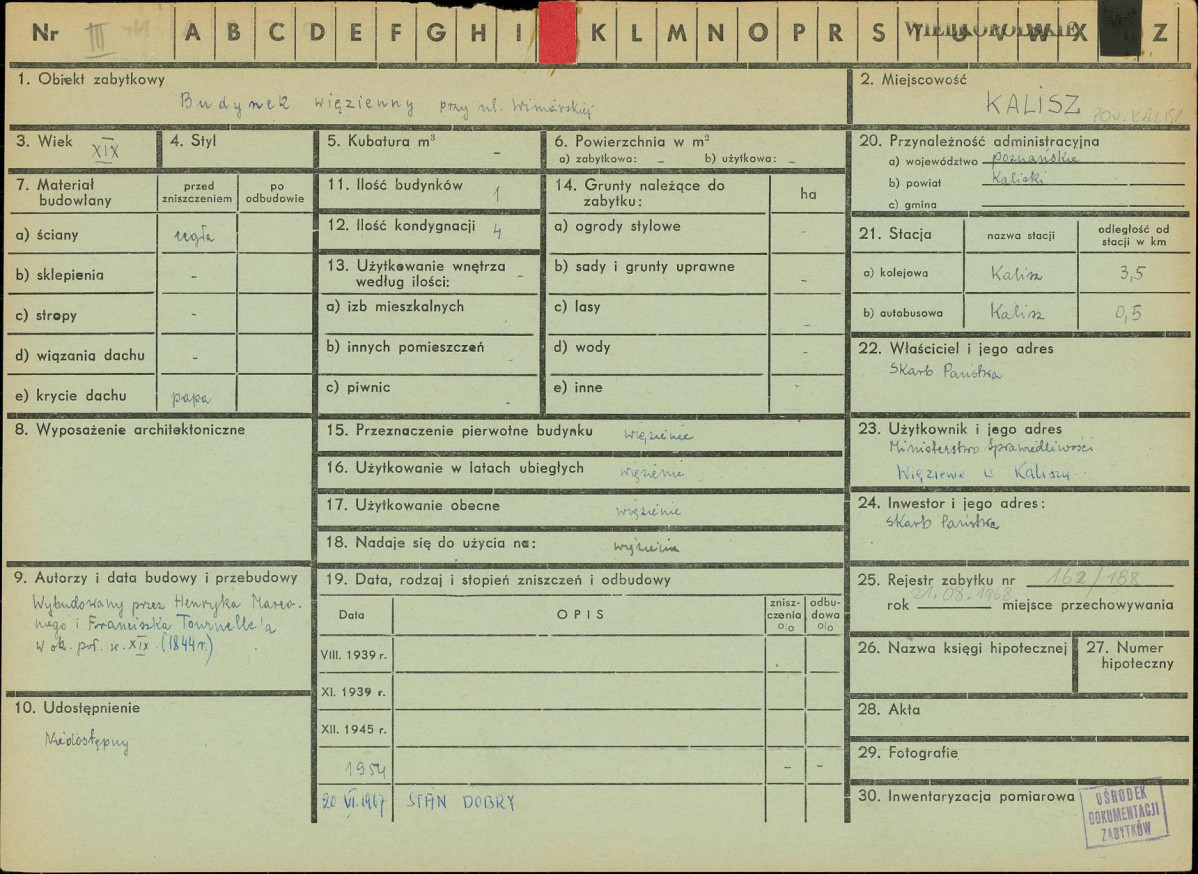 Nr III A B C D E F G H I K L M N O P R S T U V W X Z
WIELKOPOLSKIE
1. Obiekt zabytkowy
Budynek więzienny przy ul. Winiarskiej
2. Miejscowość
KALISZ POW. KALISZ
3. Wiek XIX
4. Styl
5. Kubatura m³ -
6. Powierzchnia w m²
a) zabytkowa: - b) użytkowa: -
7. Materiał budowlany
przed zniszczeniem
po odbudowie
a) ściany cegła
b) sklepienia -
c) stropy -
d) wiązania dachu -
e) krycie dachu papa
11. Ilość budynków 1
12. Ilość kondygnacji 4
13. Użytkowanie wnętrza według ilości: -
a) izb mieszkalnych -
b) innych pomieszczeń -
c) piwnic -
14. Grunty należące do zabytku:
ha
a) ogrody stylowe -
b) sady i grunty uprawne -
c) lasy -
d) wody -
e) inne -
8. Wyposażenie architektoniczne
15. Przeznaczenie pierwotne budynku więzienie
16. Użytkowanie w latach ubiegłych więzienie
17. Użytkowanie obecne więzienie
18. Nadaje się do użycia na: więzienia
9. Autorzy i data budowy i przebudowy
Wybudowany przez Henryka Marco-
niego i Franciszka Tournelle'a
w ok. poł. w. XIX (1844 r.)
10. Udostępnienie
Niedostępny
19. Data, rodzaj i stopień zniszczeń i odbudowy
Data
OPIS
znisz-
czenia
%
odbu-
dowa
%
VIII. 1939 r.
XI. 1939 r.
XII. 1945 r.
1954 - -
20 VI. 1967 STAN DOBRY
20. Przynależność administracyjna
a) województwo poznańskie
b) powiat Kaliski
c) gmina
21. Stacja
nazwa stacji
odległość od
stacji w km
a) kolejowa Kalisz 3,5
b) autobusowa Kalisz 0,5
22. Właściciel i jego adres
Skarb Państwa
23. Użytkownik i jego adres
Ministerstwo Sprawiedliwości
Więzienie w Kaliszu
24. Inwestor i jego adres:
Skarb Państwa
25. Rejestr zabytku nr 162/188
21.08.1968
rok miejsce przechowywania
26. Nazwa księgi hipotecznej
27. Numer
hipoteczny
28. Akta
29. Fotografie
30. Inwentaryzacja pomiarowa
OŚRODEK
DOKUMENTACJI
ZABYTKÓW